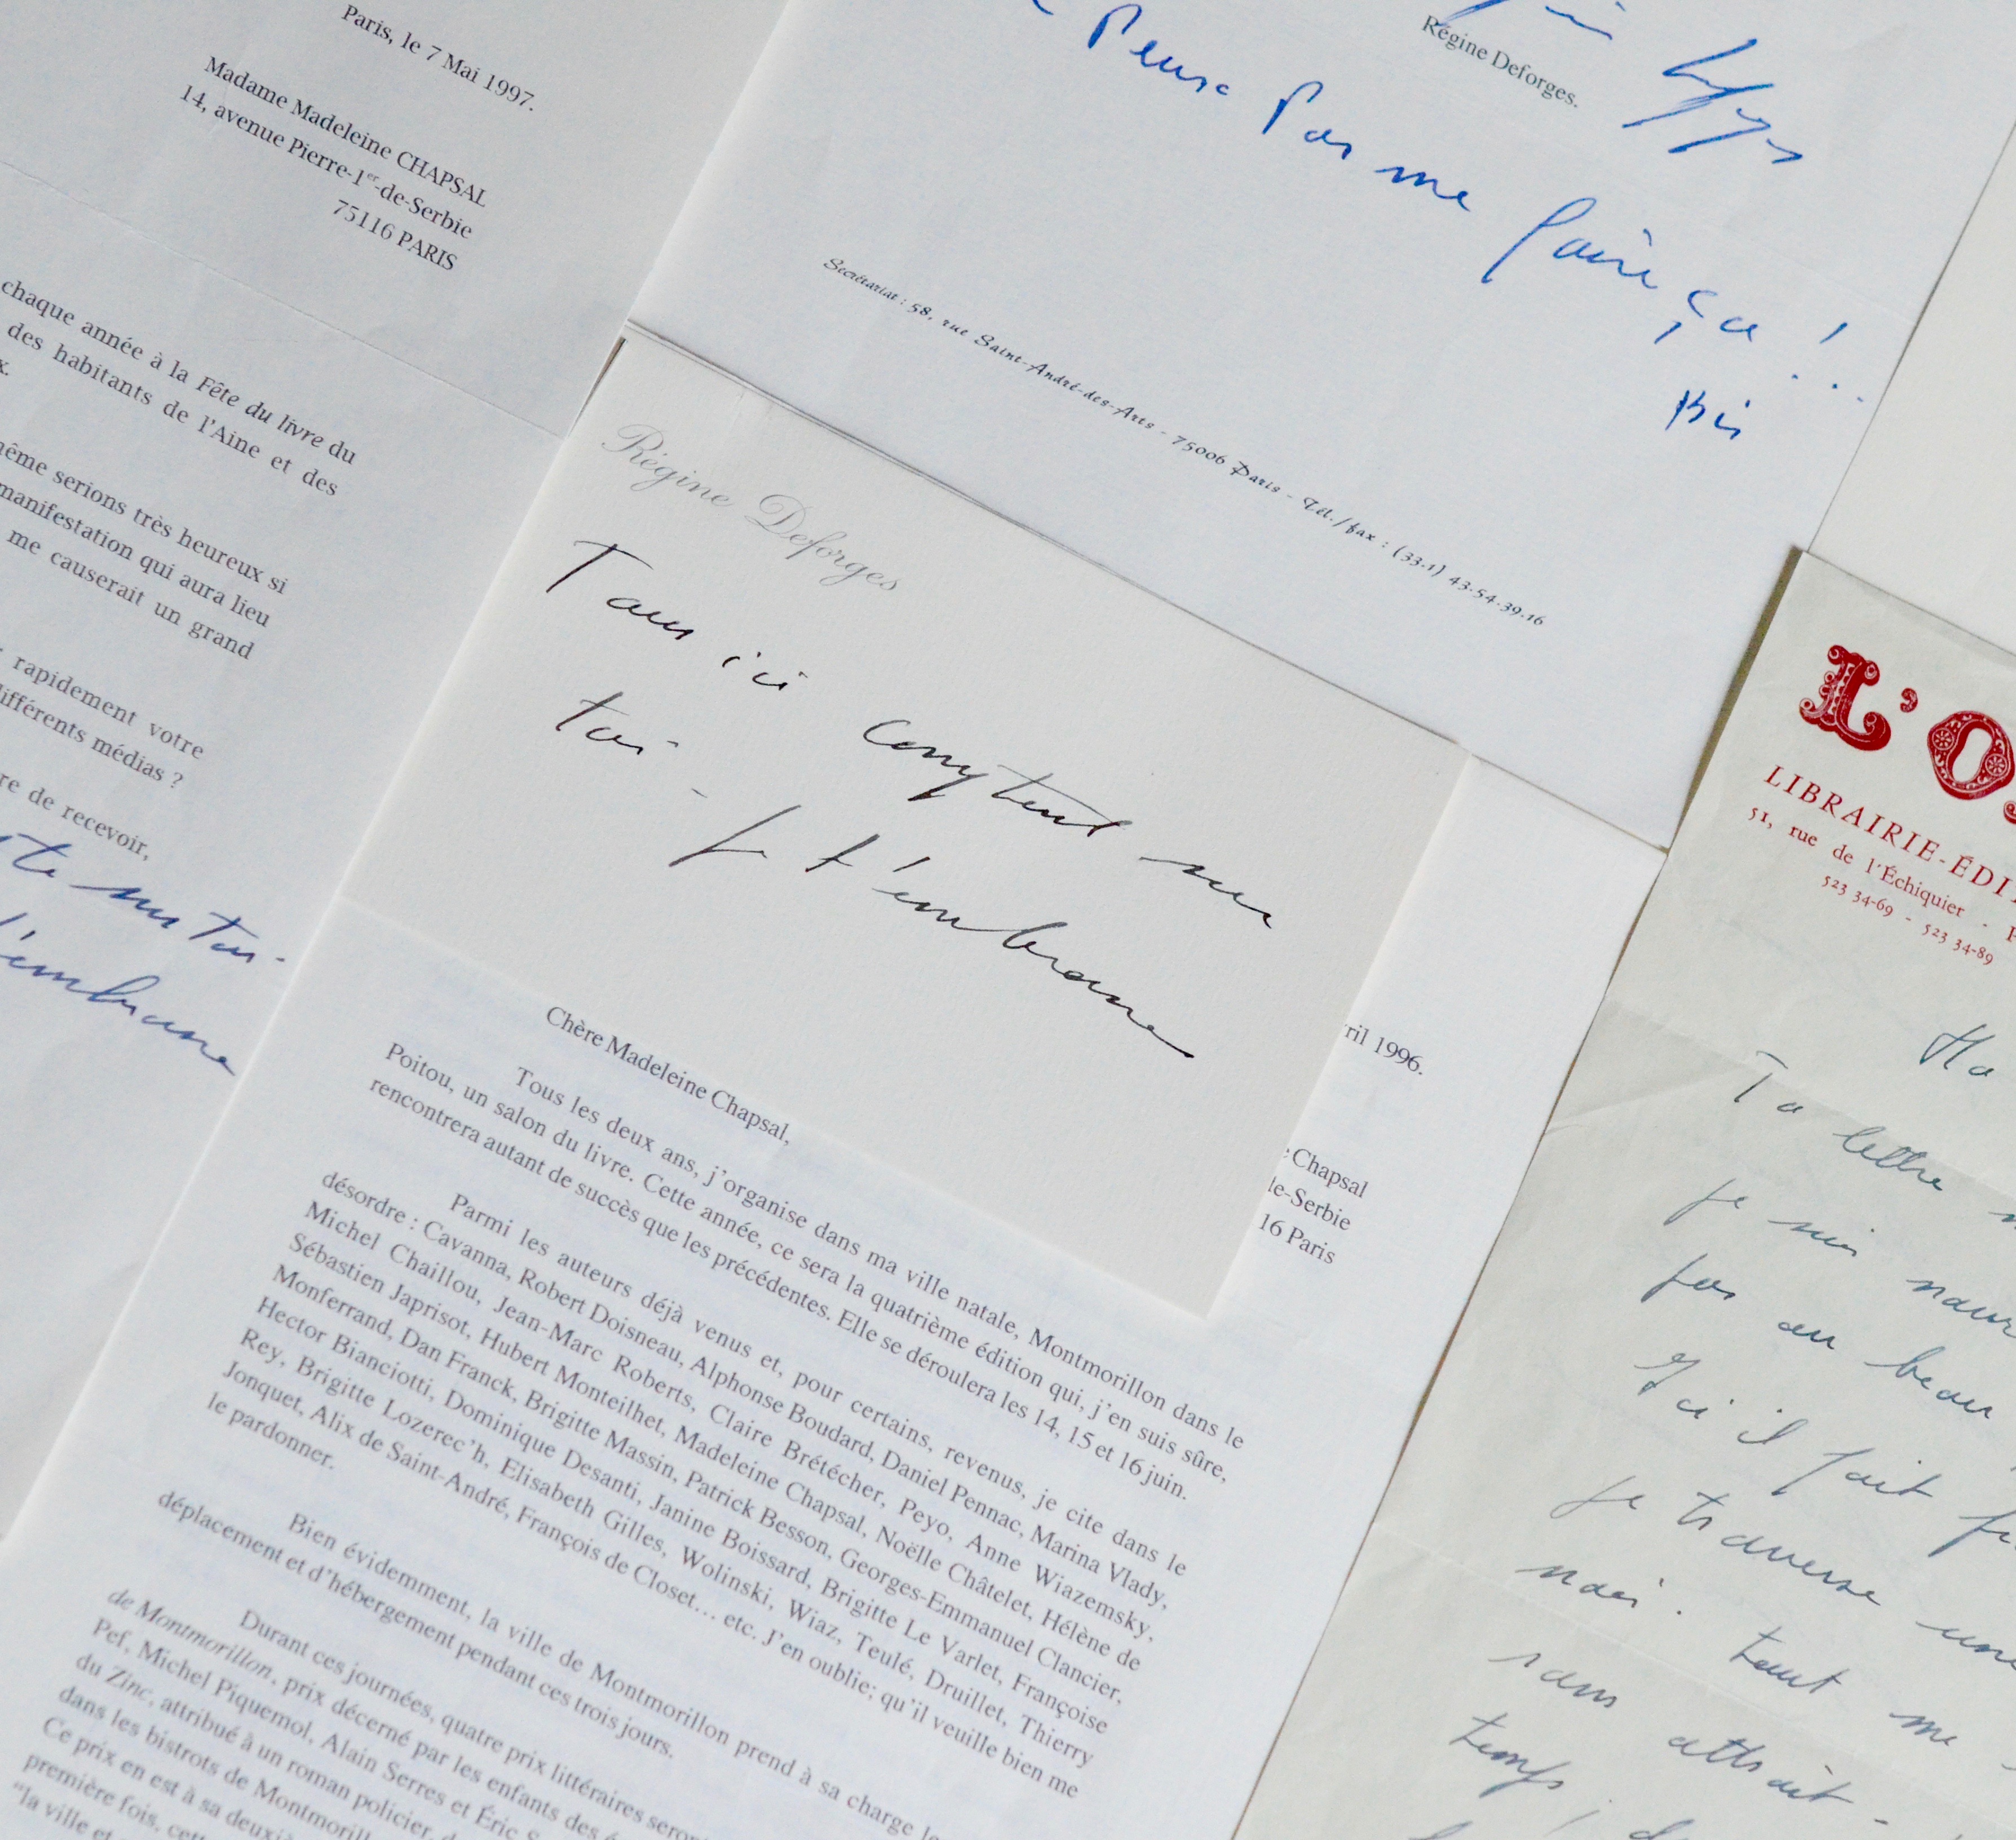 Paris, le 7 Mai 1997.
Madame Madeleine CHAPSAL
14, avenue Pierre-1er-de-Serbie
75116 PARIS
chaque année à la Fête du livre du
des habitants de l'Aine et des
x.
même serions très heureux si
manifestation qui aura lieu
me causerait un grand
rapidement votre
différents médias ?
re de recevoir,
te sur toi-
t'embrasse
Régine Deforges.
Peux pas me faire ça !
Bis
Secrétariat : 58, rue Saint-André-des-Arts - 75006 Paris - Tél./fax : (33.1) 43.54.39.16
Régine Deforges
Tous ici comptent sur
toi - Je t'embrasse
ril 1996.
Chapsal
de-Serbie
16 Paris
Chère Madeleine Chapsal,
Tous les deux ans, j'organise dans ma ville natale, Montmorillon dans le
Poitou, un salon du livre. Cette année, ce sera la quatrième édition qui, j'en suis sûre,
rencontrera autant de succès que les précédentes. Elle se déroulera les 14, 15 et 16 juin.
Parmi les auteurs déjà venus et, pour certains, revenus, je cite dans le
désordre : Cavanna, Robert Doisneau, Alphonse Boudard, Daniel Pennac, Marina Vlady,
Michel Chaillou, Jean-Marc Roberts, Claire Brétécher, Peyo, Anne Wiazemsky,
Sébastien Japrisot, Hubert Monteilhet, Madeleine Chapsal, Noëlle Châtelet, Hélène de
Monferrand, Dan Franck, Brigitte Massin, Patrick Besson, Georges-Emmanuel Clancier,
Hector Bianciotti, Dominique Desanti, Janine Boissard, Brigitte Le Varlet, Françoise
Rey, Brigitte Lozerec'h, Elisabeth Gilles, Wolinski, Wiaz, Teulé, Druillet, Thierry
Jonquet, Alix de Saint-André, François de Closet... etc. J'en oublie; qu'il veuille bien me
le pardonner.
Bien évidemment, la ville de Montmorillon prend à sa charge le
déplacement et d'hébergement pendant ces trois jours.
Durant ces journées, quatre prix littéraires seron
de Montmorillon, prix décerné par les enfants des é
Pef, Michel Piquemol, Alain Serres et Éric S
du Zinc, attribué à un roman policier, d
dans les bistrots de Montmorill
Ce prix en est à sa deuxiè
première fois, cett
"la ville et
L'O
LIBRAIRIE-ÉDI
51, rue de l'Échiquier - P
523 34-69 - 523 34-89
Ma
Ta lettre
Je suis
pas au beau
Ici il fait
Je traverse une
noir. Tout me
sans attrait -
temps ;